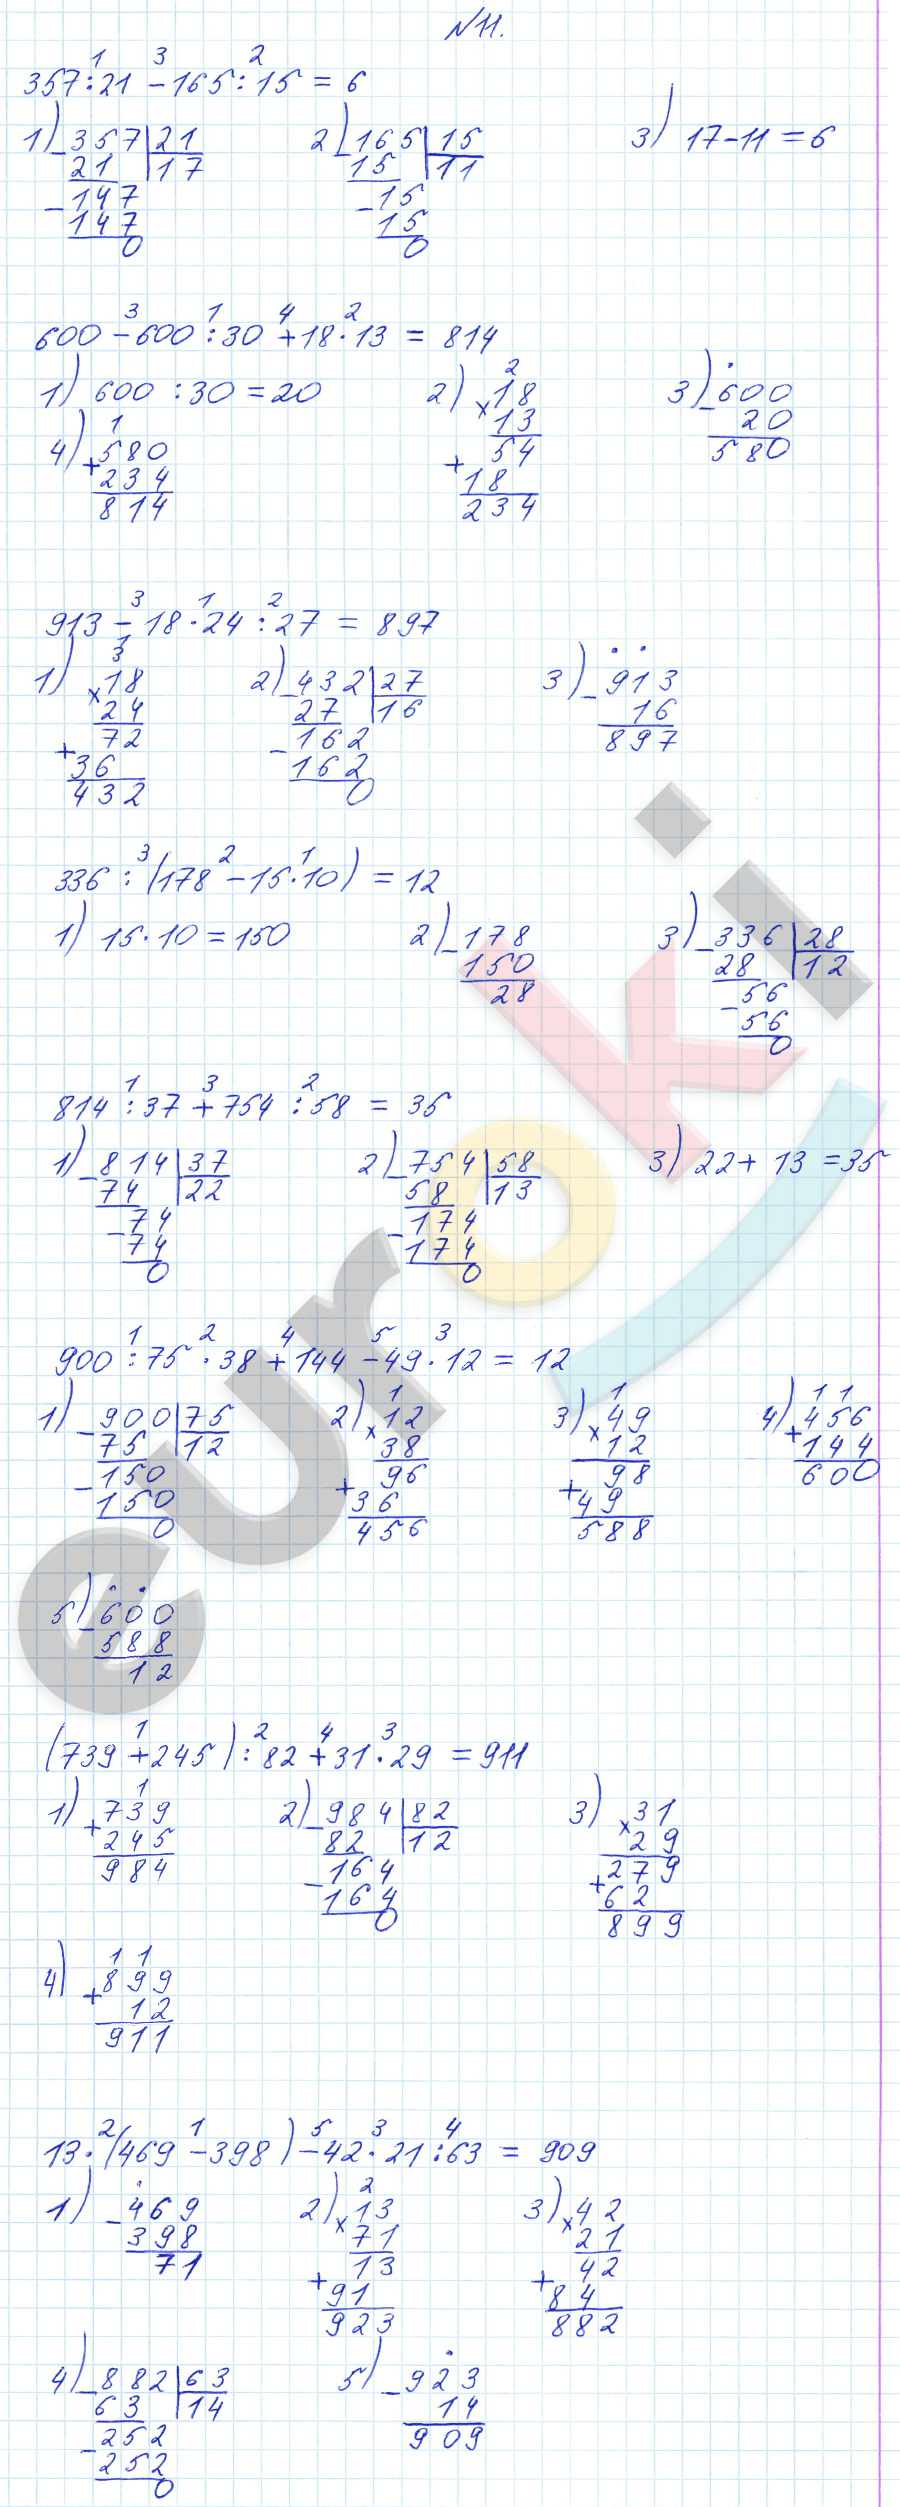 №11.
1 3 2
357:21 - 165:15 = 6
1) - 357 | 21 2) - 165 | 15 3) 17 - 11 = 6
21 | 17 15 | 11
- 147 - 15
147 15
0 0
3 1 4 2
600 - 600 : 30 + 18 · 13 = 814
2
1) 600 : 30 = 20 2) × 18 3) - 600
1 13 20
4) + 580 + 54 580
234 18
814 234
3 1 2
913 - 18 · 24 : 27 = 897
1
3
1) × 18 2) - 432 | 27 3) - 913
24 27 | 16 16
+ 72 - 162 897
36 162
432 0
3 2 1
336 : (178 - 15 · 10) = 12
1) 15 · 10 = 150 2) - 178 3) - 336 | 28
150 28 | 12
28 - 56
56
0
1 3 2
814 : 37 + 754 : 58 = 35
1) - 814 | 37 2) - 754 | 58 3) 22 + 13 = 35
74 | 22 58 | 13
- 74 - 174
74 174
0 0
1 2 4 5 3
900 : 75 · 38 + 144 - 49 · 12 = 12
1 1 1 1
1) - 900 | 75 2) × 12 3) × 49 4) + 456
75 | 12 38 12 144
- 150 + 96 + 98 600
150 36 49
0 456 588
5) - 600
588
12
1 2 4 3
(739 + 245) : 82 + 31 · 29 = 911
1
1) + 739 2) - 984 | 82 3) × 31
245 82 | 12 29
984 - 164 + 279
164 62
0 899
1 1
4) + 899
12
911
2 1 5 3 4
13 · (469 - 398) - 42 · 21 : 63 = 909
2
1) - 469 2) × 13 3) × 42
398 71 21
71 + 13 + 42
91 84
923 882
4) - 882 | 63 5) - 923
63 | 14 14
- 252 909
252
0
euroki